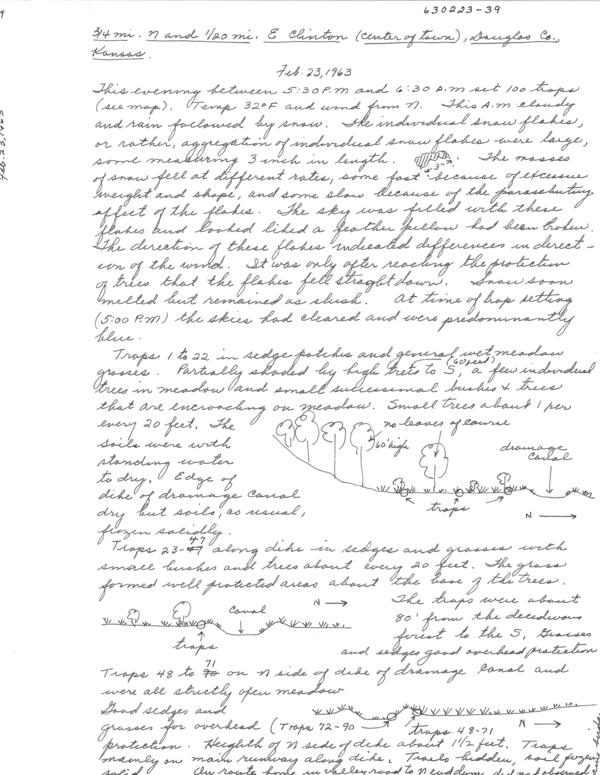 630223-39
3/4 mi. N and 1/20 mi. E Clinton (center of town), Douglas Co.,
Kansas.
Feb. 23, 1963
This evening between 5:30 P.M and 6:30 P.M, set 100 traps
(see map). Temp 32°F and wind from N. This A.M cloudy
and rain followed by snow. The individual snow flakes,
or rather, aggregation of individual snow flakes were large,
some measuring 3 inch in length. ←3"→. The masses
of snow fell at different rates, some fast because of excessive
weight and shape, and some slow because of the parachuting
affect of the flakes. The sky was filled with these
flakes and looked liked a feather pillow had been broken.
The direction of these flakes indicated differences in direct-
ion of the wind. It was only after reaching the protection
of trees that the flakes fell straght down. Snow soon
melted but remained as slush. At time of trap setting
(5:00 P.M) the skies had cleared and were predominantly
blue.
Traps 1 to 22 in sedge patches and general wet meadow
grasses. Partially shaded by high trees to S, (60 feet) a few individual
trees in meadow and small successional bushes & trees
that are encroaching on meadow. Small trees about 1 per
every 20 feet. The
soils were with
standing water
to dry. Edge of
dike of drainage canal
dry but soils, as usual,
frozen solidly.
no leaves of course
60' high
drainage
canal
traps
N →
Traps 23-47 along dike in sedges and grasses with
small bushes and trees about every 20 feet. The grass
formed well protected areas about the base of the trees.
N →
canal
traps
The traps were about
80' from the deciduous
forest to the S. Grasses
and sedges good overhead protection
Traps 48 to 71 on N side of dike of drainage canal and
were all strictly open meadow
Good sedges and
grasses for overhead (Traps 72-90
traps 48-71
N →
protection. Heighth of N side of dike about 1 1/2 feet. Traps
mainly on main runway along dike. Trails hidden, soil frozen
solid. On route home in valley road to N
Feb. 23, 1963